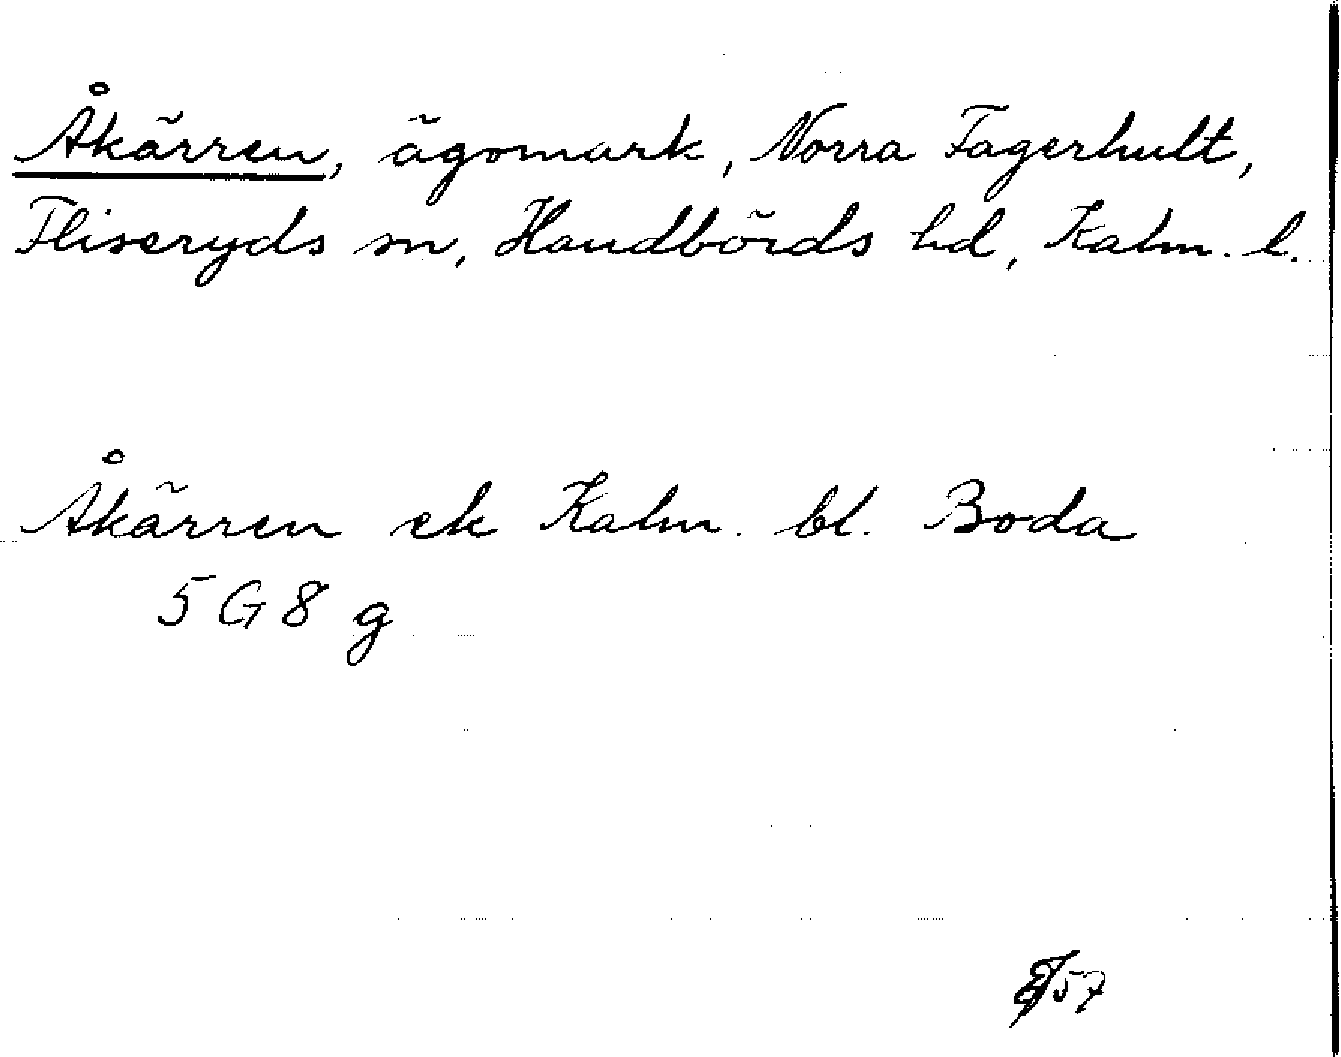 Åkärren, ägomark, Norra Fagerhult,
Fliseryds sn, Handbörds hd, Kalm. l.
Åkärren ek Kalm. bl. Boda
5 G 8 g
57